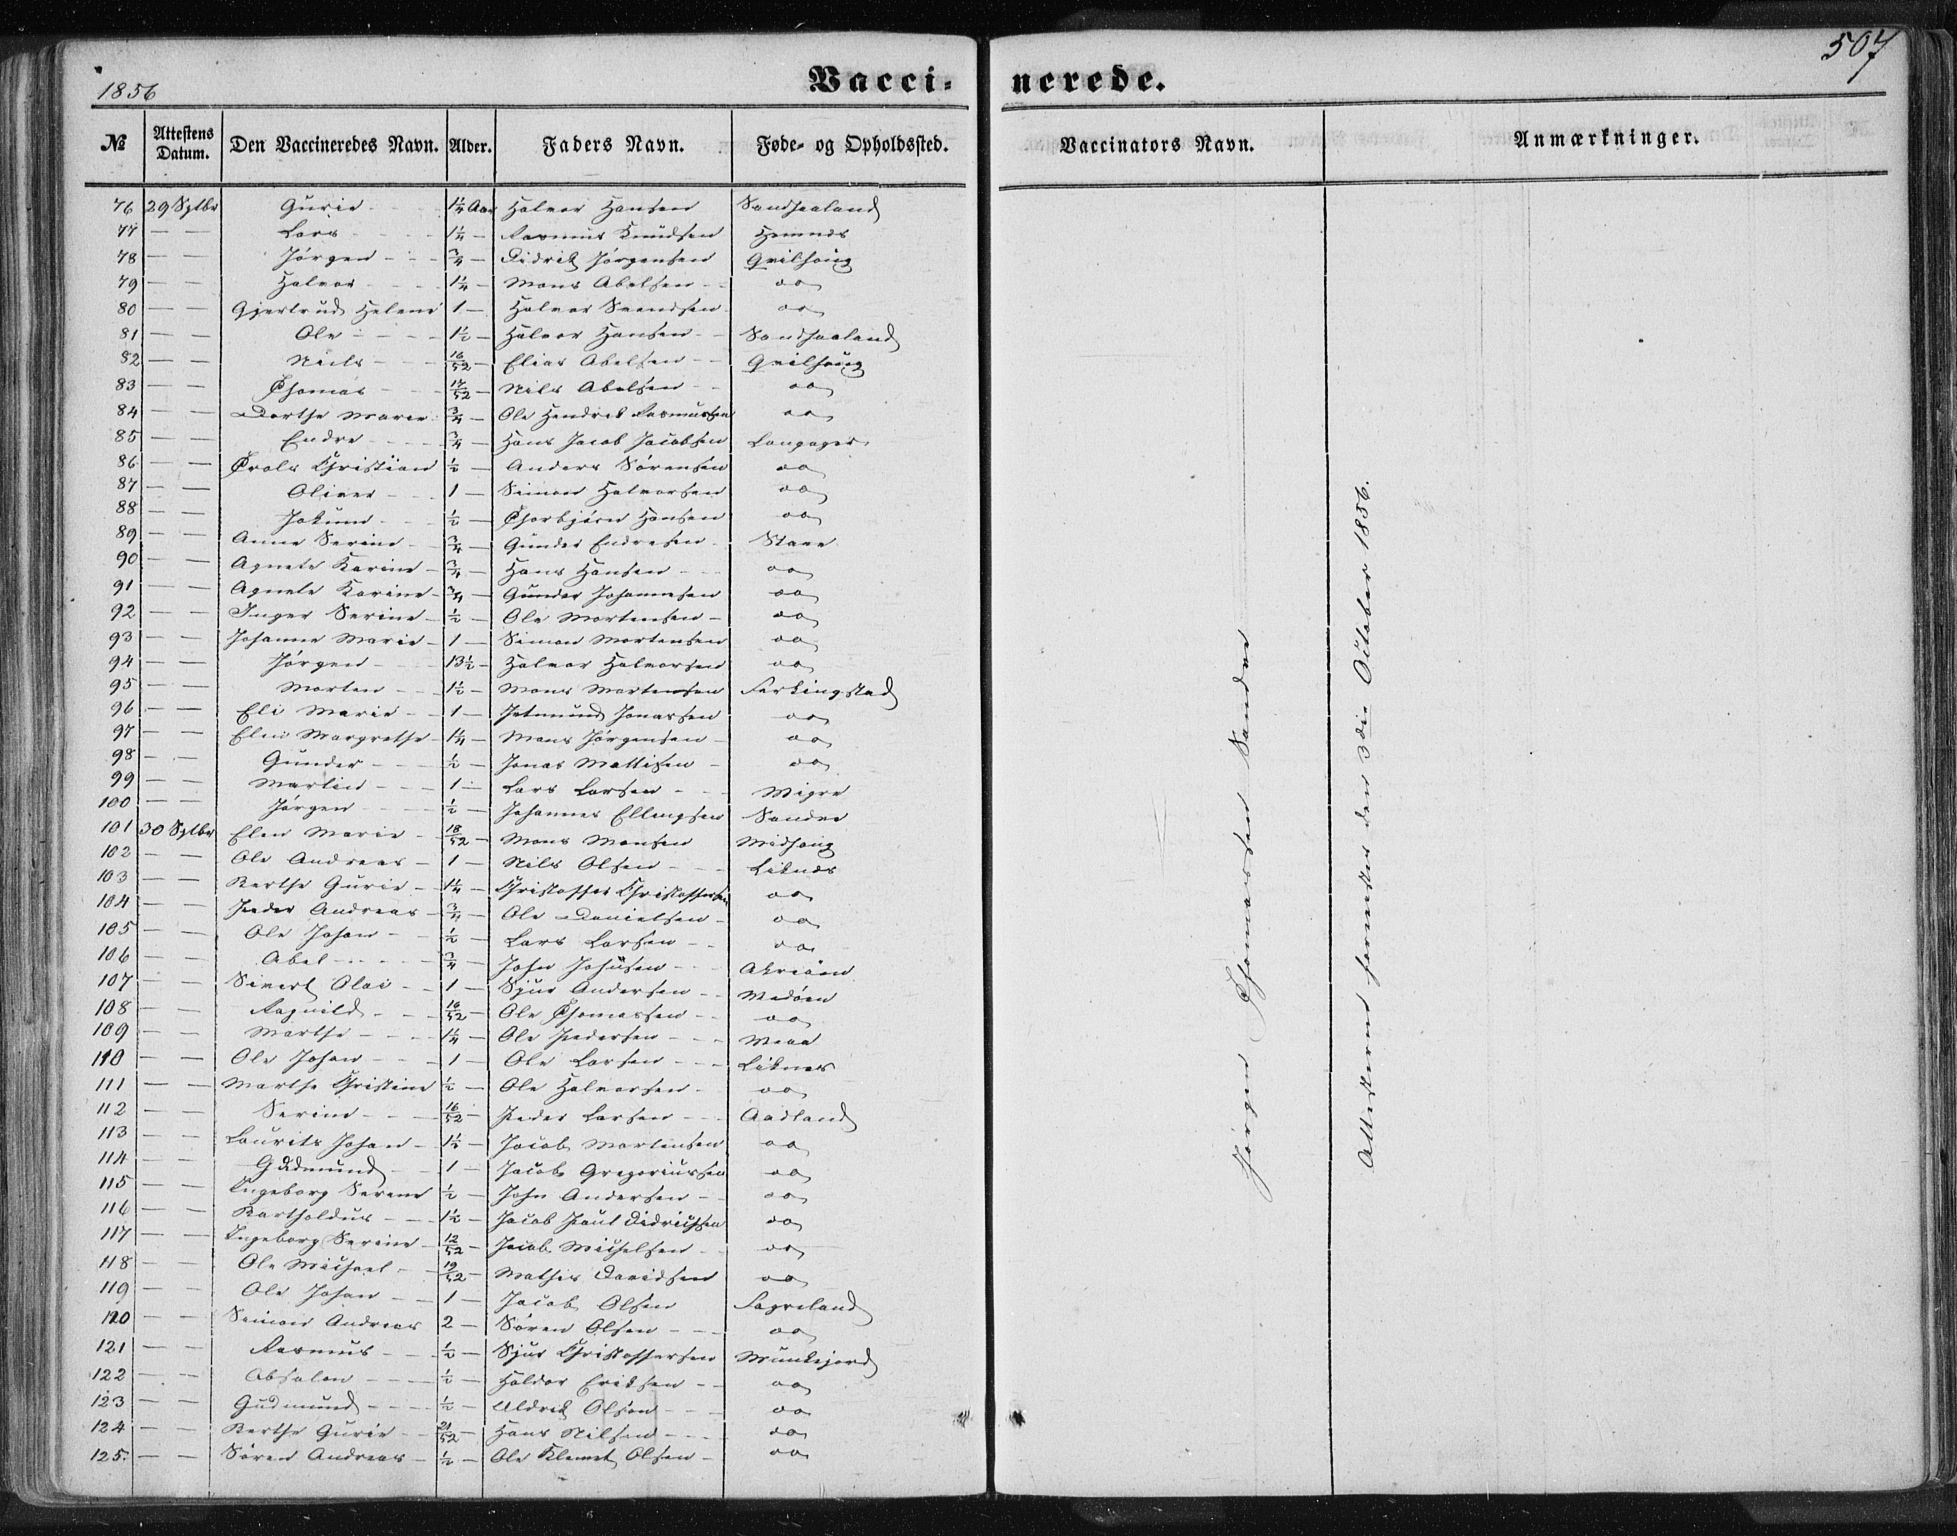 1856 Vacci- nerede. 507
№ Attestens Datum. Den Vaccineredes Navn. Alder. Faders Navn. Føde- og Opholdssted. Vaccinators Navn. Anmærkninger.
76 29 Sptbr Gurie 1¼ Aar Halvor Hansen Sandhaaland
77 — — Lars 1¼ — Rasmus Knudsen Hemnes
78 — — Jørgen ¾ — Didrik Jørgensen Qvilhaug
79 — — Halvor 1¼ — Mons Abelsen do
80 — — Gjertrud Helene 1 — Halvor Svendsen do
81 — — Ole 1½ — Halvor Hansen Sandhaaland
82 — — Niels 16/52 — Elias Abelsen Qvilhaug
83 — — Thomas 17/52 — Nils Abelsen do
84 — — Dorthe Marie ¾ — Ole Hendrik Rasmussen do
85 — — Endre ¾ — Hans Jacob Jacobsen Langager
86 — — Trols Christian ½ — Anders Sørensen do
87 — — Oliver 1 — Simon Halvorsen do
88 — — Jokum ½ — Thorbjørn Hansen do
89 — — Anne Serine ¾ — Gunder Endresen Stave
90 — — Agnete Karine ¾ — Hans Hansen do
91 — — Agnete Karine ¾ — Gunder Johannesen do
92 — — Inger Serine ½ — Ole Mortensen do
93 — — Johanne Marie 1 — Simon Mortensen do
94 — — Jørgen 13½ — Halvor Halvorsen do
95 — — Morten 1½ — Mons Mortensen Ferkingstad
96 — — Eli Marie 1 — Jetmund Jonassen do
97 — — Elen Margrethe 1¼ — Mons Jørgensen do
98 — — Gunder ½ — Jonas Mattisen do
99 — — Martin 1 — Lars Larsen Wigre
100 — — Jørgen ½ — Johannes Ellingsen Sandve
101 30 Sptbr Elen Marie 18/52 — Mons Monsen Midhaug
102 — — Ole Andreas 1 — Nils Olsen Liknes
103 — — Berthe Gurie 1¼ — Christoffer Christoffersen do
104 — — Peder Andreas ¾ — Ole Danielsen do
105 — — Ole Johan ½ — Lars Larsen do
106 — — Abel ¾ — John Johnsen Akrøen
107 — — Sivert Olai 1 — Sjur Andersen Wedøen
108 — — Ragnild 16/52 — Ole Thomassen do
109 — — Marthe 1¼ — Ole Pedersen Weaa
110 — — Ole Johan 1 — Ole Larsen Liknes
111 — — Marthe Christine ½ — Ole Halvorsen do
112 — — Serine 16/52 — Peder Larsen Aadland
113 — — Laurits Johan 1½ — Jacob Mortensen do
114 — — Gudmund 1 — Jacob Gregoriussen do
115 — — Ingeborg Serene ½ — John Andersen do
116 — — Bartholdus 1½ — Jacob Paul Didrichsen do
117 — — Ingeborg Serine 12/52 — Jacob Michelsen do
118 — — Ole Michael 19/52 — Mathis Davidsen do
119 — — Ole Johan 1 — Jacob Olsen Fagreland
120 — — Simon Andreas 2 — Søren Olsen do
121 — — Rasmus ½ — Sjur Christoffersen Munkejord
122 — — Absalon ½ — Haldor Eriksen do
123 — — Gudmund ½ — Aldrik Olsen do
124 — — Berthe Gurie 21/52 — Hans Nilsen do
125 — — Søren Andreas ½ — Ole Klemet Olsen do
Jørgen Thomassen Sandve
Attesterne foreviste den 3die October 1856.